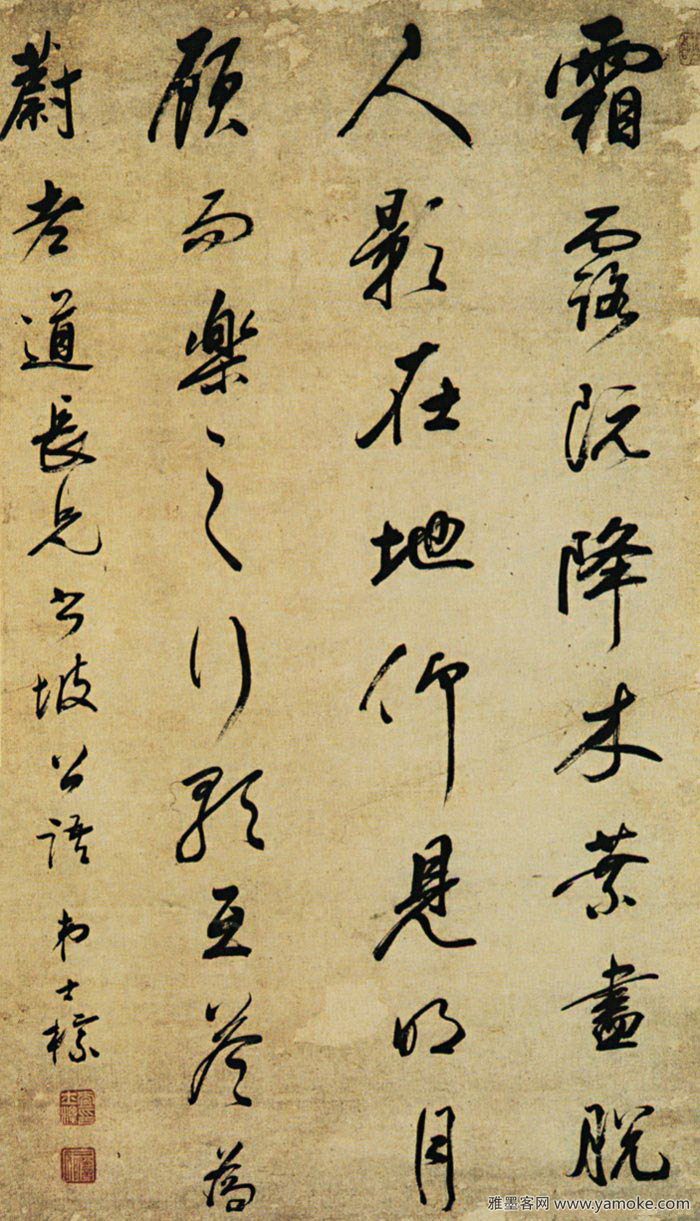 霜露既降木葉盡脫
人影在地仰見明月
顧而樂之行歌互答為
蔚老道長兄書坡公語 弟士標
雅墨客网 www.yamoke.com